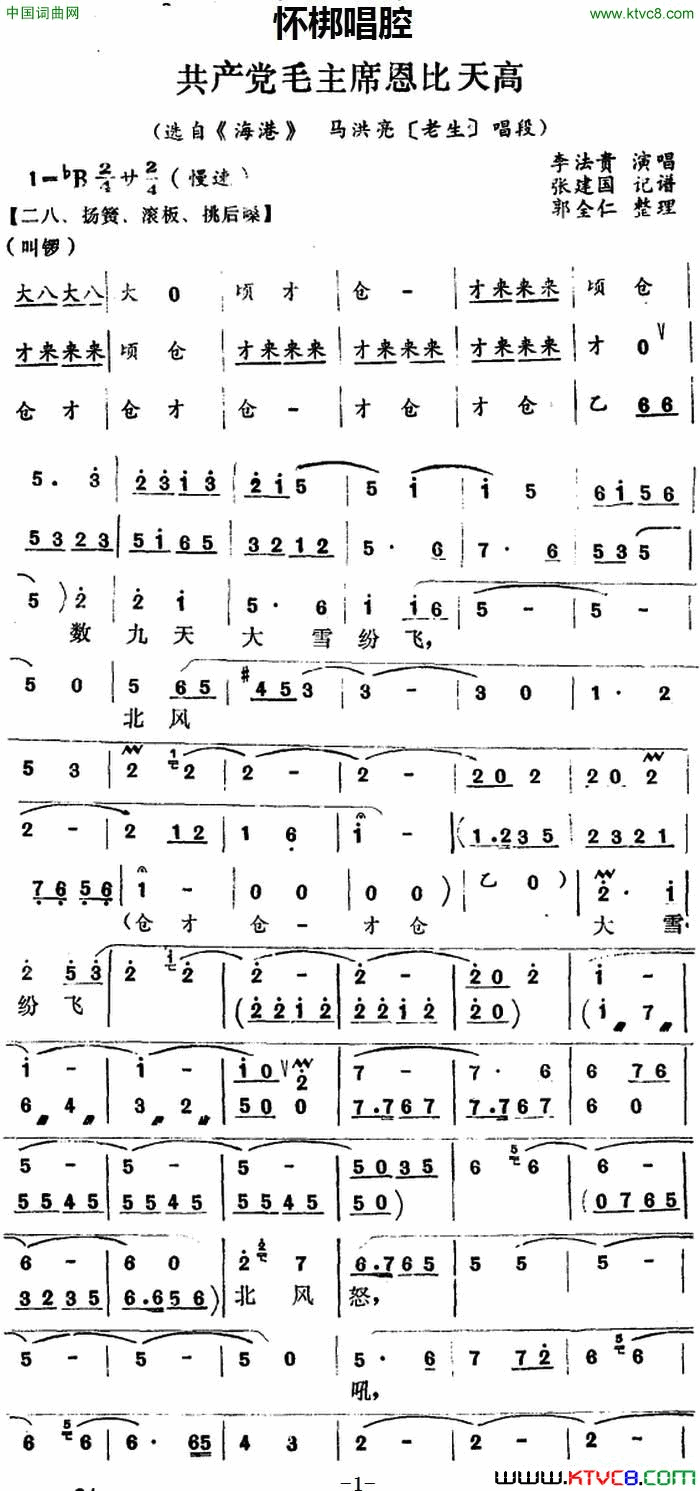 中国词曲网
www.ktvc8.com
怀梆唱腔
共产党毛主席恩比天高
(选自《海港》 马洪亮〔老生〕唱段)
李法贵 演唱
1=♭B 2/4 サ 2/4 (慢速)
张建国 记谱
郭全仁 整理
【二八、扬簧、滚板、挑后嗓】
(叫锣)
大八大八 | 大 0 | 顷 才 | 仓 - | 才来来来 | 顷 仓 |
才来来来 | 顷 仓 | 才来来来 | 才来来来 | 才来来来 | 才 0 V |
仓 才 | 仓 才 | 仓 - | 才 仓 | 才 仓 | 乙 66
5. 3 | 2313 | 215 | 5 i | i 5 | 6i56
5323 | 5i65 | 3212 | 5· 6 | 7· 6 | 535
5) 2 | 2 i | 5· 6 | i i6 | 5 - | 5 -
数 九 天 大 雪 纷 飞,
5 0 | 5 65 | #453 | 3 - | 3 0 | 1· 2
北 风
5 3 | 2 2 | 2 - | 2 - | 20 2 | 20 2
2 - | 2 12 | 1 6 | i - | (1.235 | 2321
76 56 | 1 - | 0 0 | 0 0) | 乙 0) | 2· i
(仓 才 仓 - 才 仓 大 雪
2 53 | 2 2 | 2 - | 2 - | 20 2 | i -
纷 飞 (22i2 | 22i2 | 20) | (i 7
i - | i - | i0 V 2 | 7 - | 7· 6 | 6 76
6 4 | 3 2 | 50 0 | 7.767 | 7.767 | 6 0
5 - | 5 - | 5 - | 5035 | 6 6 | 6 -
5545 | 5545 | 5545 | 50) | (0765
6 - | 6 0 | 2 7 | 6.765 | 5 5 | 5 -
3235 | 6.656) | 北 风 怒,
5 - | 5 - | 5 0 | 5· 6 | 7 72 | 6 6
吼,
6 6 | 6· 65 | 4 3 | 2 - | 2 - | 2 -
-1-
www.KTVC8.com